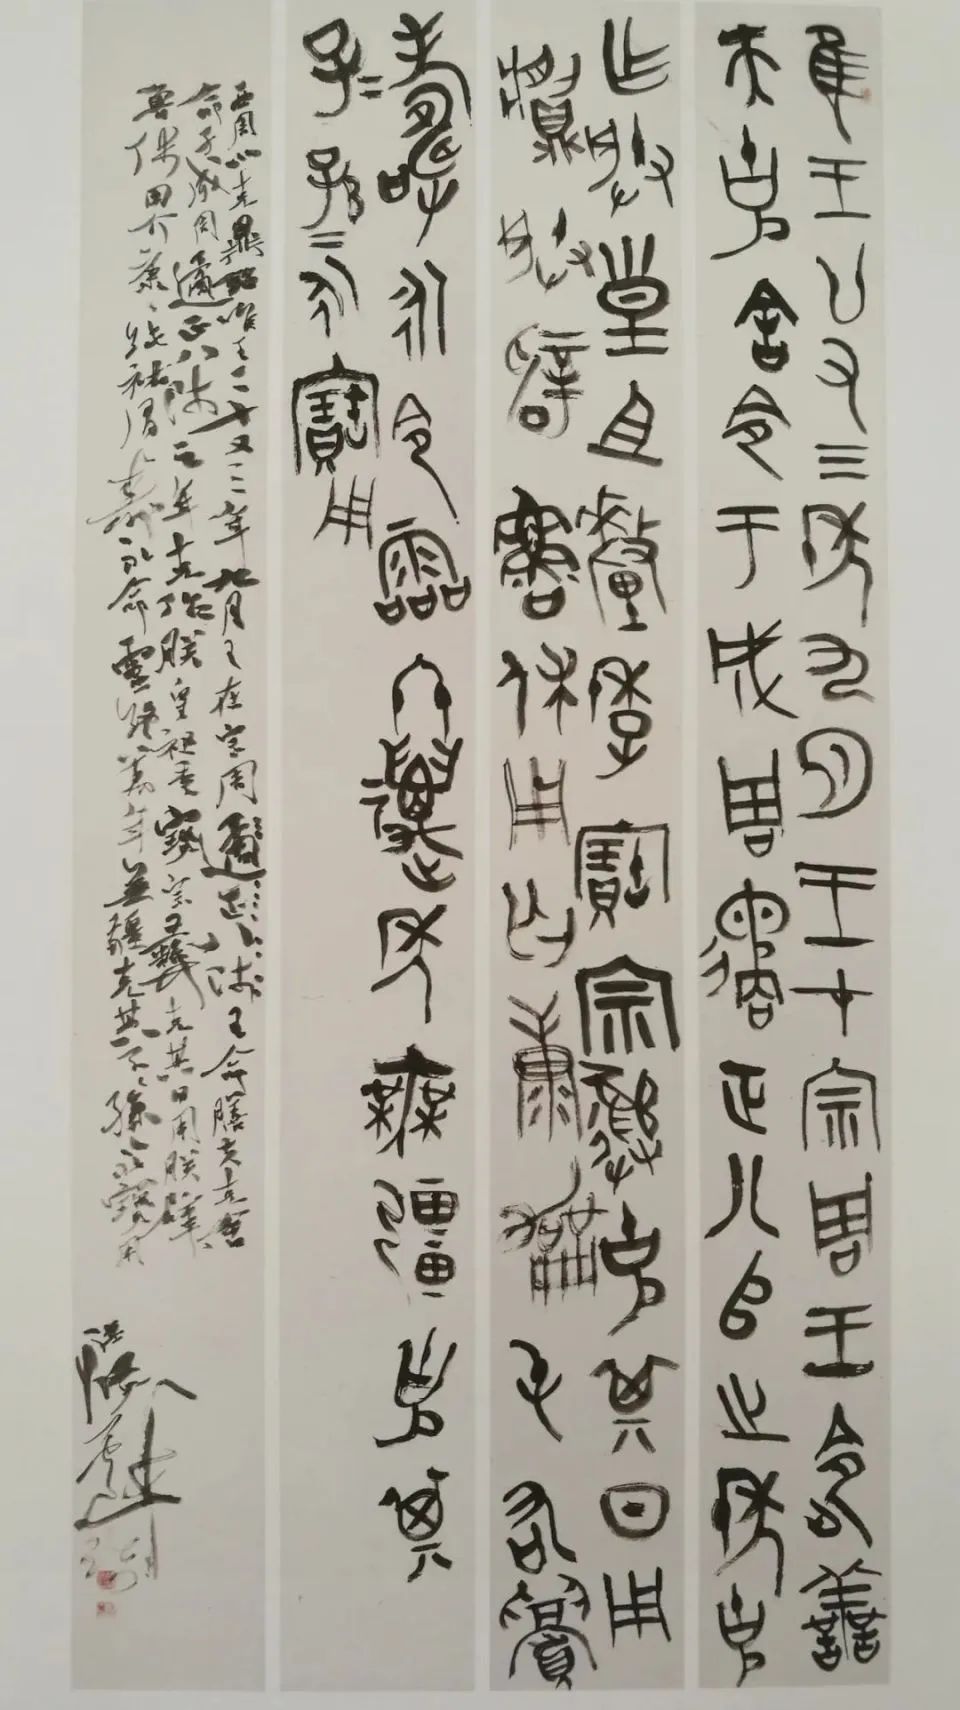 隹王廿又三年九月王才宗周王令善
夫克舍令于成周遹正八𠂤之年克
乍朕皇且釐季寶宗彝克其日用
𩰫朕辟魯休用匄康龢屯右眉
壽永令霝冬萬年無疆克其
子〻孫〻永寶用
西周小克鼎銘唯王二十又三年九月王在宗周遹正八師王命膳夫克舍
命于成周遹正八師之年克作朕皇祖釐寶宗彝克其日用朕辟
魯休用匄康龢純祐眉壽永命靈終萬年無疆克其子〻孫永寶用